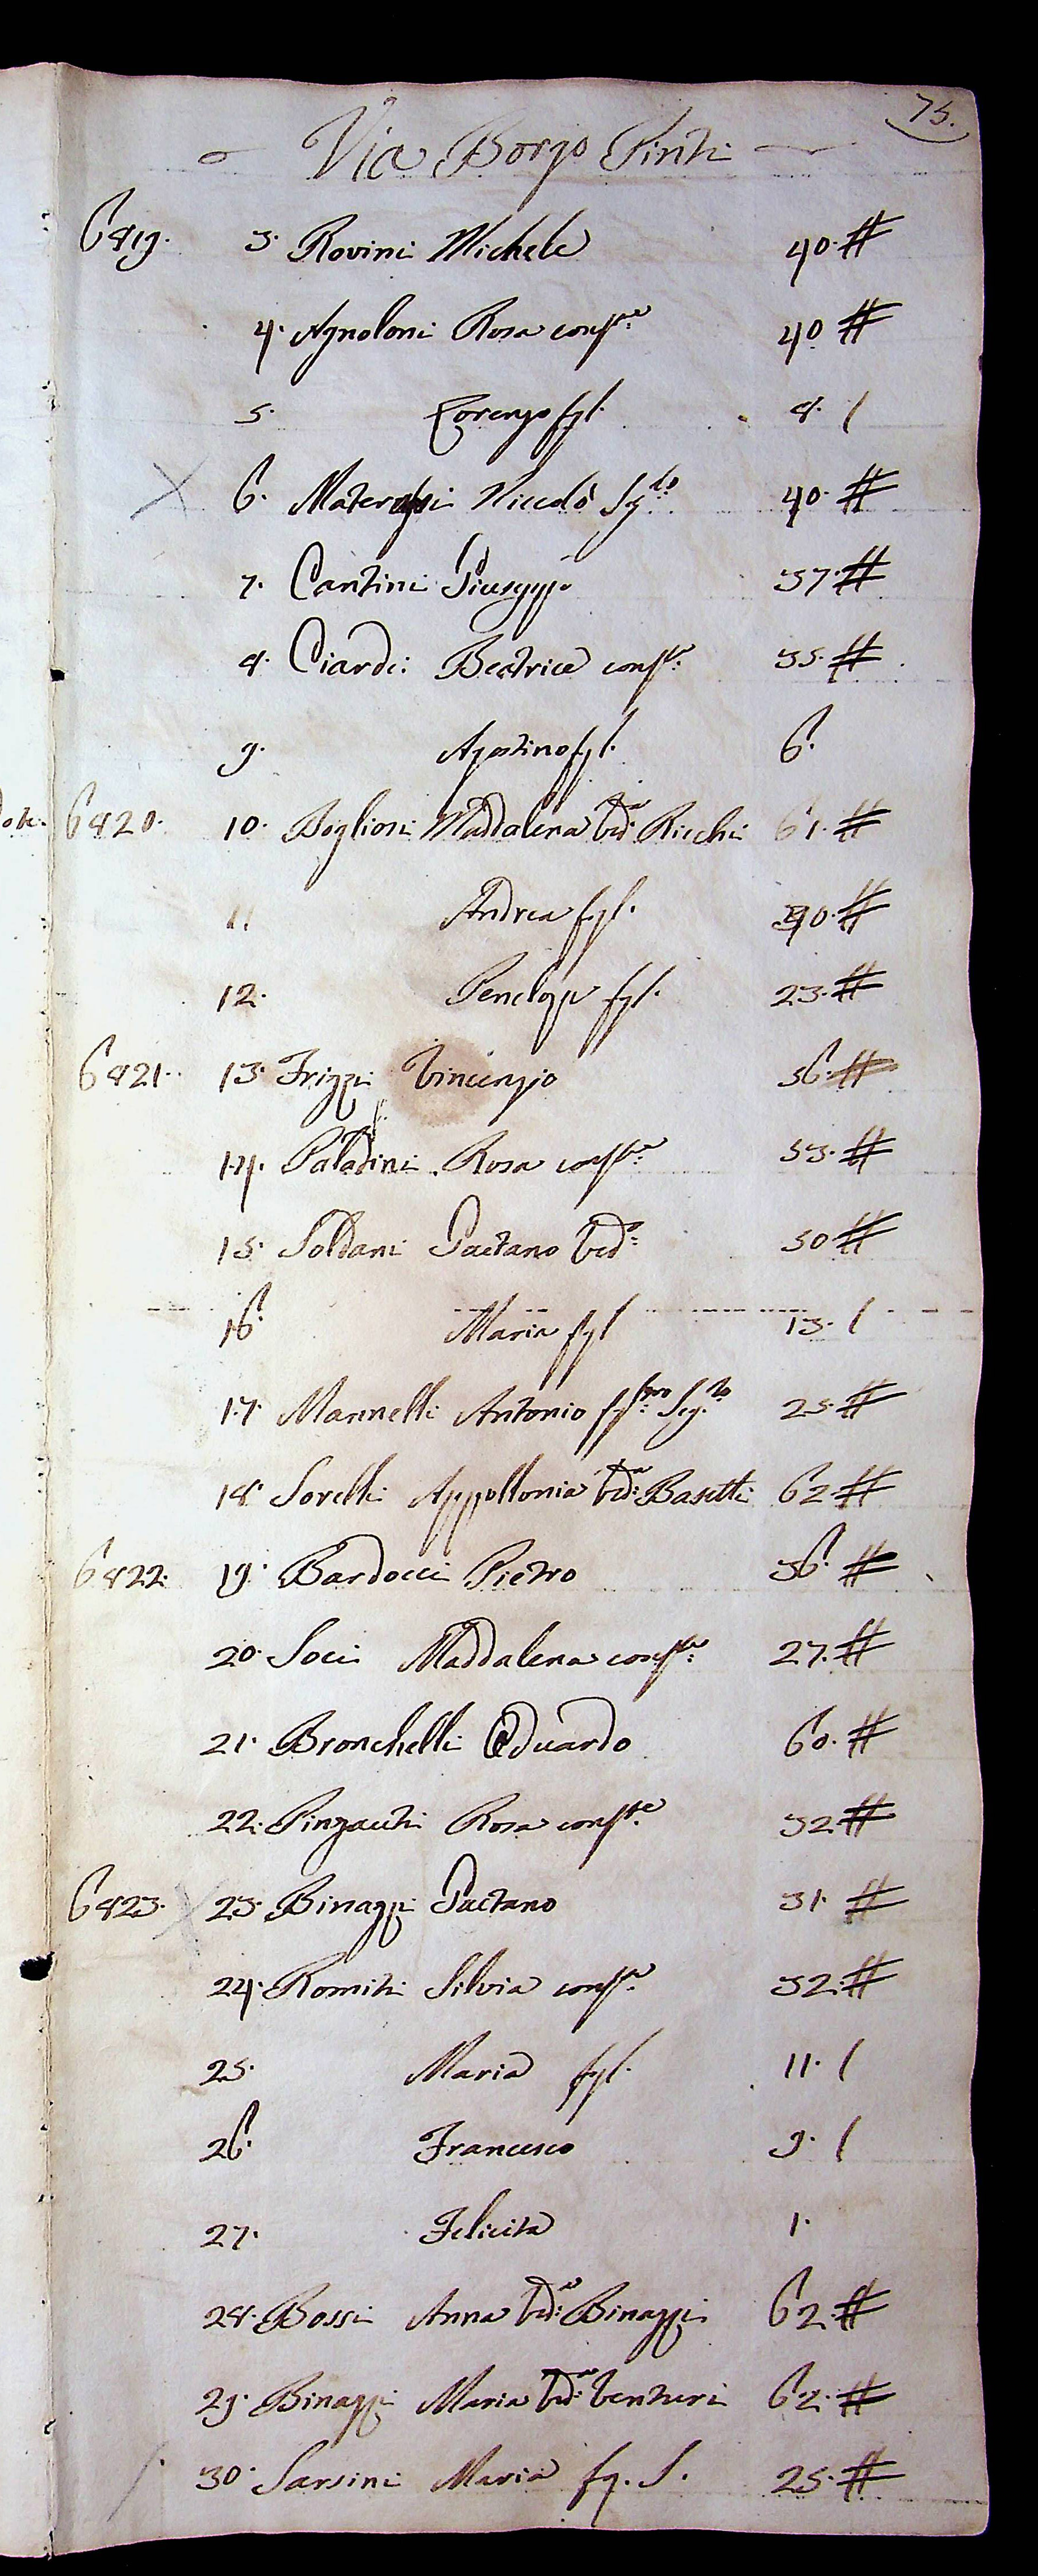 75.
Via Borgo Pinti
6819. 3. Rovini Michele 40. #
4. Agnoloni Rosa cons.te 40 #
5. Lorenzo fgl. 8. /
6. Niccolò Sg.to 40. #
7. Cantini Giuseppe 37. #
8. Ciardi Beatrice cons.te 35. #
9. Agostino fgl. 6.
6820. 10. Maddalena Ved.a Ricchi 61. #
11 Andrea fgl. 40. #
12. Penelope fgl. 23. #
6821. 13. Frizzi Vincenzio 56. #
14. Paladini Rosa cons.te 53. #
15. Soldani Gaetano Ved.o 50 #
16. Maria fgl 13. /
17. Mannelli Antonio Seg.to 25. #
18. Sorelli Appollonia Ved.a Basetti 62. #
6822. 19. Bardocci Pietro 36. #
20. Soci Maddalena cons.te 27. #
21. Bronchelli Oduardo 60. #
22. Pinzauti Rosa cons.te 52. #
6823. 23. Binazzi Gaetano 31. #
24. Romiti Silvia cons.te 32. #
25. Maria fgl. 11. /
26. Francesco 9. /
27. Felicita 1.
28. Bossi Anna Ved.a Binazzi 62. #
29. Binazzi Maria Ved.a Venturi 62. #
30. Sarsini Maria fg. S. 25. #